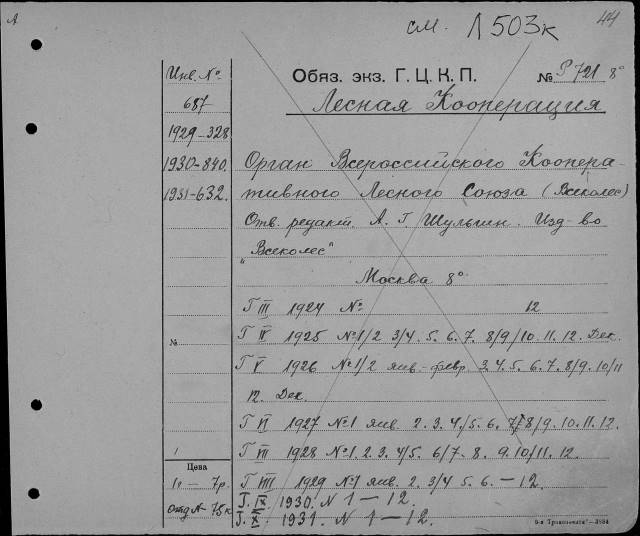 Л
44
см. Л 503к
Инв. №
Обяз. экз. Г.Ц.К.П. № Р 721 8°
687
Лесная Кооперация
1929-328
1930-840.
Орган Всероссийского Коопера-
1931-632.
тивного Лесного Союза (Всеколес)
Отв. редакт. А. Г. Шульгин. Изд-во
„Всеколес"
Москва 8°
Г III 1924 № 12
№ Г IV 1925 №1/2 3/4. 5. 6. 7. 8/9/10. 11. 12. Дек.
Г V 1926 №1/2 янв.-февр 3. 4. 5. 6. 7. 8/9. 10/11
12. Дек
Г VI 1927 №1 янв. 2. 3. 4./5. 6. 7/8/9. 10. 11. 12.
Г VII 1928 №1. 2. 3. 4/5. 6/7. 8. 9. 10/11. 12.
Цена
Г VIII 1929 №1 янв. 2. 3/4 5. 6. — 12.
1г — 7р.
Т. IX. 1930. N 1 — 12.
Отд № - 75к
Т. X. 1931. N 1 — 12.